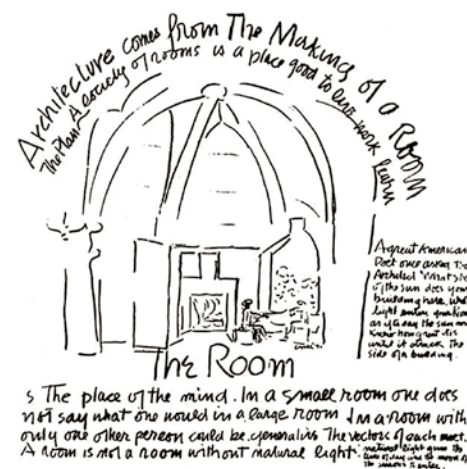 Architecture comes from The Making of a Room
The Plan A society of rooms is a place good to live work learn
A great American
Poet once asked the
Architect 'What slice
of the sun does your
building have. What
light enters your room
as if to say the sun never
knew how great it is
until it struck the
side of a building.
The Room
s The place of the mind. In a small room one does
not say what one would in a large room In a room with
only one other person could be generative The vectors of each meet.
A room is not a room without natural light.
natural light gives the
time of day and the mood of
the seasons to enter.